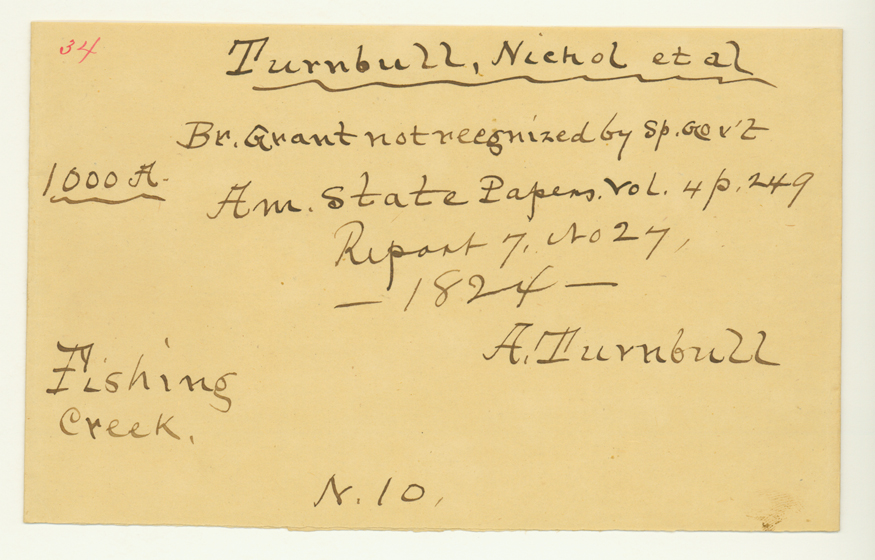 34
Turnbull, Nichol et al
Br. Grant not recegnized by Sp. Gov't
1000 A.
Am. State Papers. Vol. 4 p. 249
Report 7, No 27,
— 1824 —
A. Turnbull
Fishing
Creek.
N. 10.